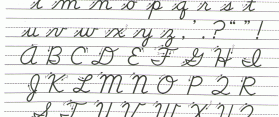 l m n o p q r s t
u v w x y z . ' . ? “ ” !
A B C D E F G H I
J K L M N O P Q R
S T U V W X Y Z